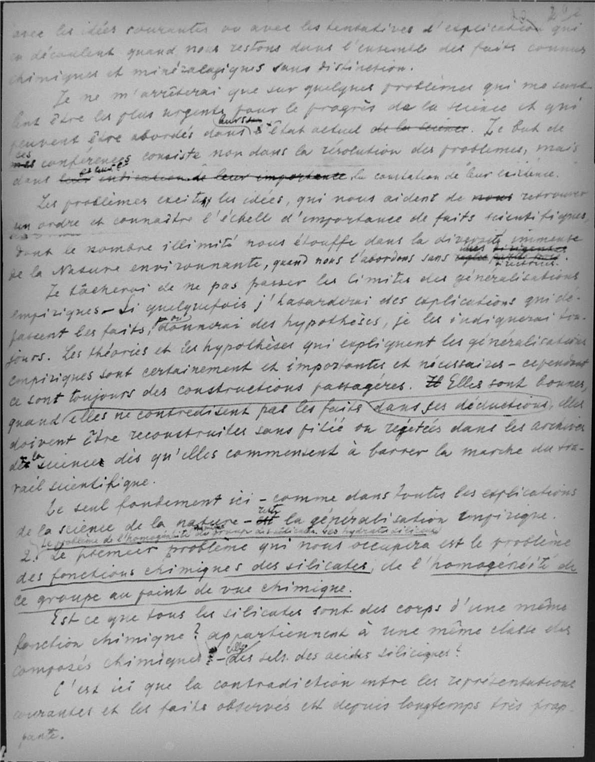 avec les idées courantes ou avec les tentatives d'explication qui
en découlent quand nous restons dans l'ensemble des faits connus
chimiques et minéralogiques sans distinction.
Je ne m'arrêterai que sur quelques problèmes qui me sem-
blent être les plus urgents pour le progrès de la science et qui
peuvent être abordés dans l'état actuel de la science. Le but de
ces conférences consiste non dans la résolution des problèmes, mais
dans indication de leur importance la constatation de leur existence.
Les problèmes excitent les idées, qui nous aident de nous retrouver
un ordre et connaître l'échelle d'importance de faits scientifiques,
dont le nombre illimité nous étouffe dans la diversité immense
de la Nature environnante, quand nous l'abordons sans
Je tâcherai de ne pas passer les limites des généralisations
empiriques – si quelquefois j'hasarderai des explications qui dé-
passent les faits, donnerai des hypothèses, je les indiquerai tou-
jours. Les théories et les hypothèses qui expliquent les généralisations
empiriques sont certainement et importantes et nécessaires – cependant
ce sont toujours des constructions passagères. Elles sont bonnes,
quand elles ne contredisent pas les faits dans ses déductions, elles
doivent être reconstruites sans pitié ou rejetées dans les archives
de la science dès qu'elles commensent à barrer la marche du tra-
vail scientifique.
Le seul fondement ici – comme dans toutes les explications
de la science de la nature – reste la généralisation empirique.
Le problème de l'homogénéité du groupe
2. Le premier problème qui nous occupera est le problème
des fonctions chimiques des silicates, de l'homogénéité de
ce groupe au point de vue chimique.
Est ce que tous les silicates sont des corps d'une même
fonction chimique? appartiennent à une même classe des
composés chimiques? – des sels des acides siliciques?
C'est ici que la contradiction entre les représentations
courantes et les faits observés est depuis longtemps très frap-
pante.